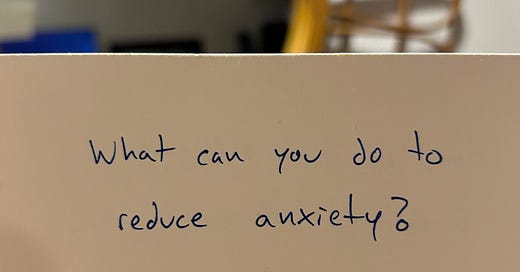 What can you do to
reduce anxiety?